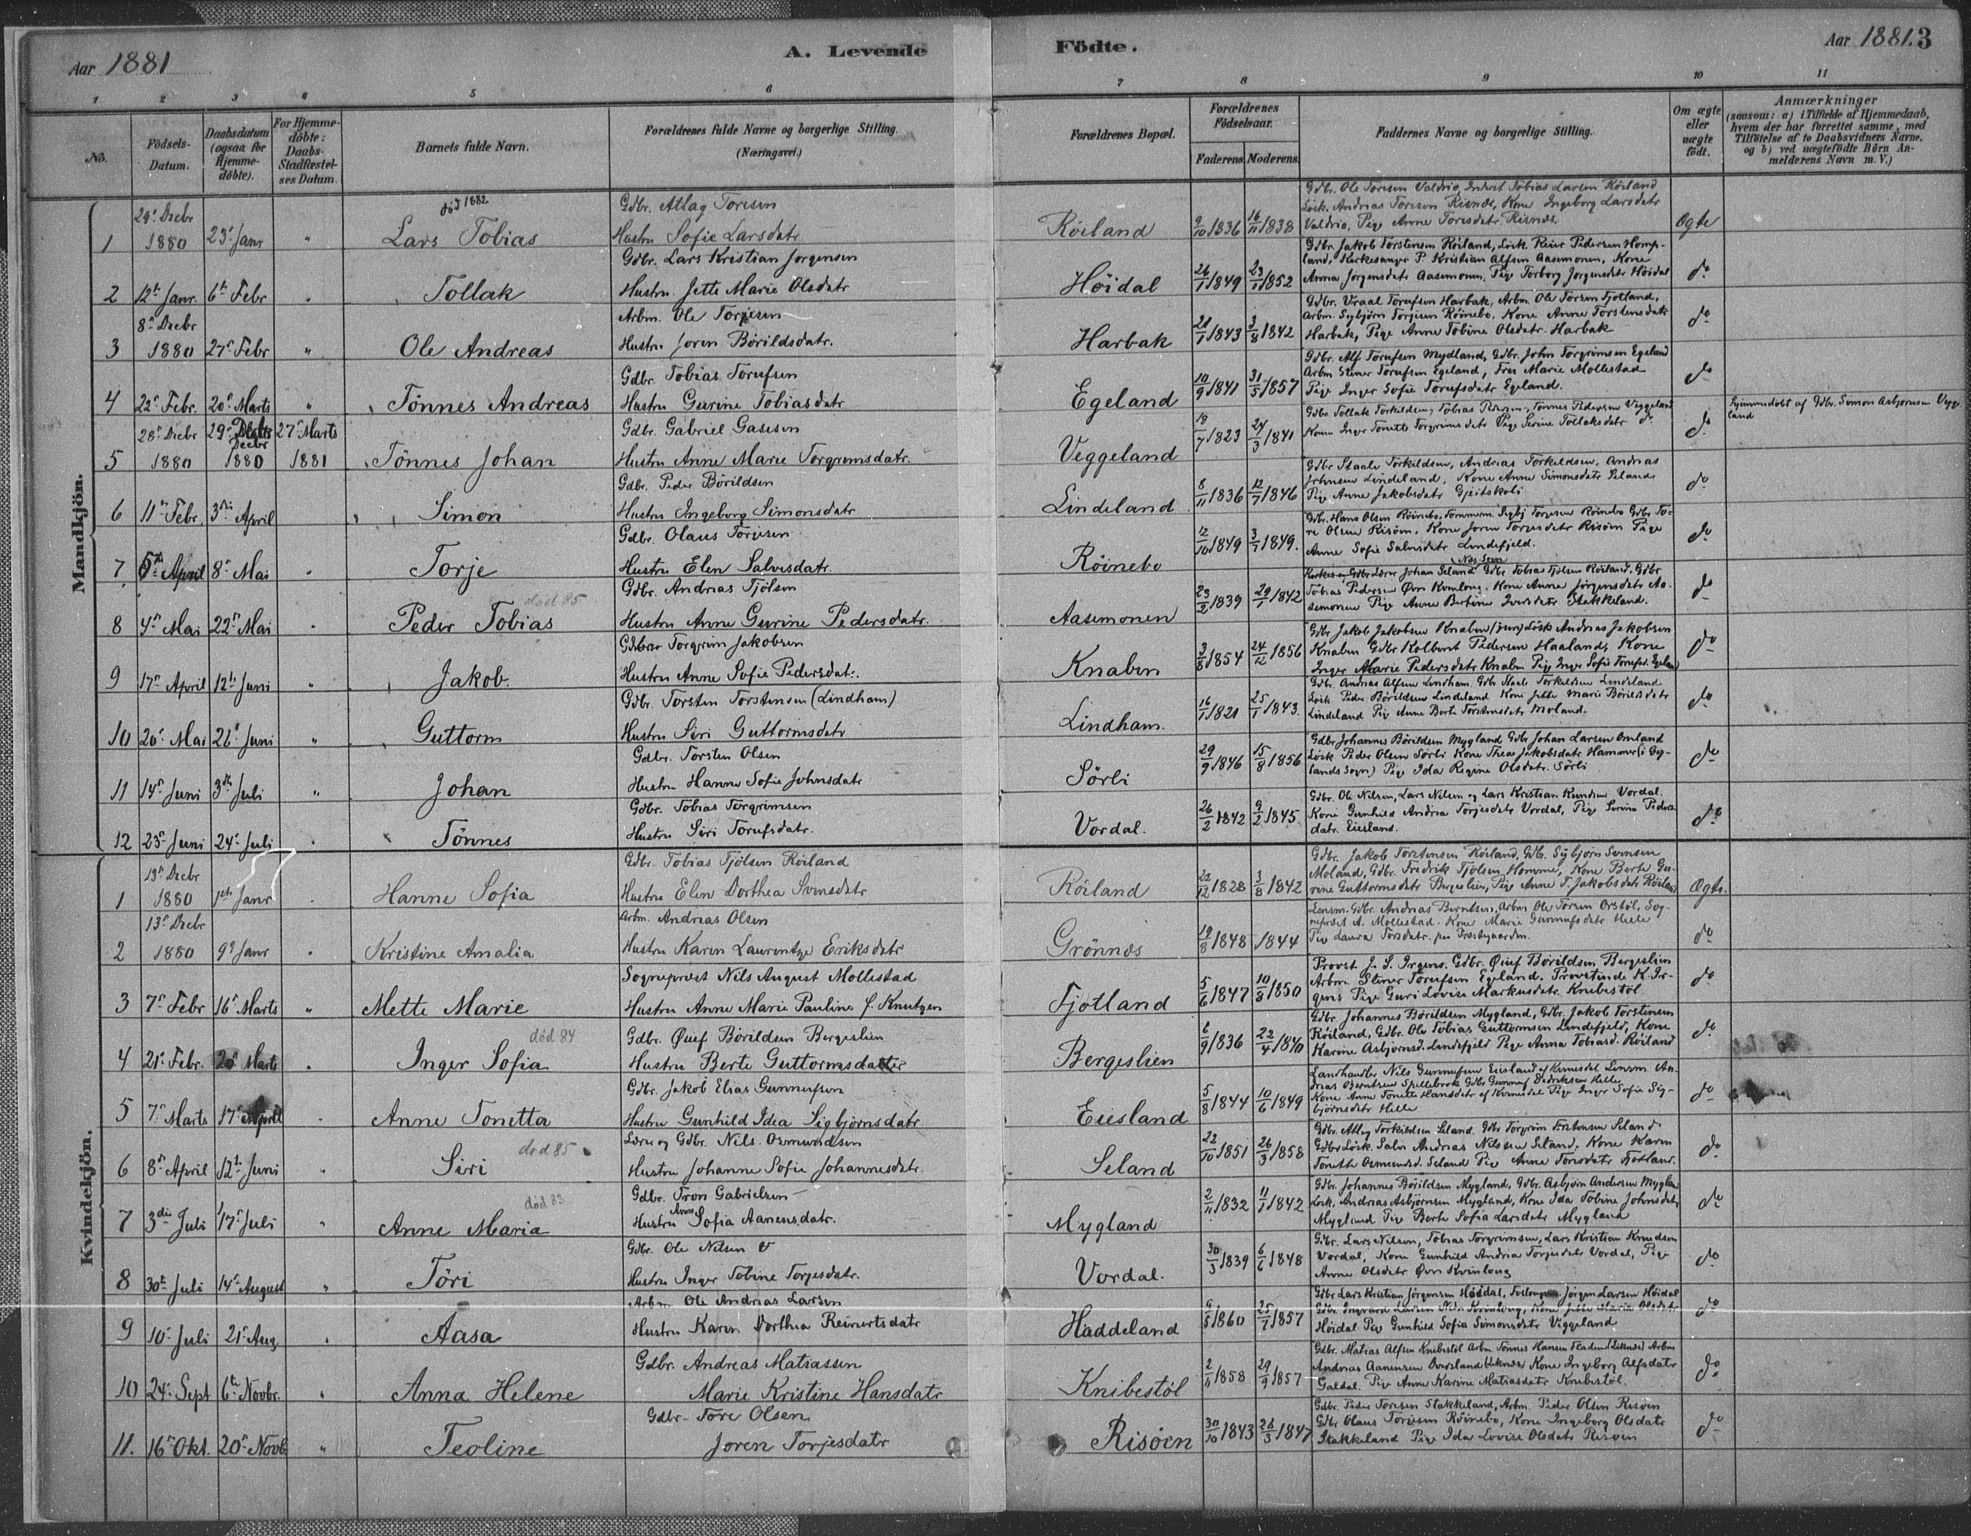 Aar 1881
A. Levende Födte.
Aar 1881. 3
1 2 3 4 5 6 7 8 9 10 11
No.
Födsels-Datum.
Daabsdatum (ogsaa for Hjemmedöbte).
For Hjemmedöbte: Daabs-Stadfæstelses Datum.
Barnets fulde Navn.
Forældrenes fulde Navne og borgerlige Stilling. (Næringsvei.)
Forældrenes Bopæl.
Forældrenes Födselsaar.
Faderens. Moderens.
Faddernes Navne og borgerlige Stilling.
Om ægte eller uægte födt.
Anmærkninger (saasom: a) i Tilfælde af Hjemmedaab, hvem der har forrettet samme, med Tilföielse af to Daabsvidners Navne, og b) ved uægtefödte Börn Anmelderens Navn m. V.)
Mandkjön.
1 29' Decbr 1880 23' Janr " Lars Tobias død 1882 Gdbr. Atlag Toresen Hustru Sofie Larsdatr Röiland 9/10 1836 16/11 1838 Gdbr. Ole Toresen Valdrio, Inderst Tobias Larsen Röiland
Lösk. Andreas Toresen Risnæs, Kone Ingeborg Larsdatr
Valdrio, Pige Anne Toresdatr. Risnæs. Ægte
2 12te Janr. 6te Febr " Tollak Gdbr. Lars Kristian Jorgensen Hustru Jette Marie Olsdatr Höidal 26/1 1849 23/1 1852 Gdbr. Jakob Torstensen Röiland, Lösk. Reier Pedersen Homp-
land, Kirkesanger P. Kristian Alfsen Aasemonen, Kone
Anna Jörgensdatr Aasemonen. Pige Torborg Jorgensdatr Höidal do
3 8de Decbr 1880 27' Febr " Ole Andreas Arbm. Ole Torjesen Hustru Joren Börildsdatr. Harbak 21/1 1843 3/8 1842 Gdbr. Vraal Torufsen Harbak, Arbm. Ole Torsen Fjotland,
Arbm. Sigbjörn Torjesen Röinebo. Kone Anne Torstensdatr
Harbak, Pige Anne Tobine Olsdatr. Harbak do
4 22' Febr. 20' Marts " Tönnes Andreas Gdbr Tobias Torufsen Hustru Gurine Tobiasdatr Egeland 10/9 1841 31/5 1857 Gdbr. Alf Torufsen Mydland, Gdbr. John Torgrimsen Egeland
Arbm Stener Torufsen Egeland, Frue Marie Mollestad
Pige Inger Sofie Torufsdatr Egeland. do
5 28' Decbr 1880 29' Decbr 1880 27' Marts 1881 Tönnes Johan Gdbr. Gabriel Gasesen Hustru Anne Marie Torgrimsdatr. Veggeland 18/7 1823 24/3 1841 Gdbr Tollak Torkildsen, Tobias Pedersen, Tönnes Pedersen Veggeland
Kone Inger Tonette Torgrimsdatr Pige Serine Tollaksdatr do do Hjemmedöbt af Gdbr. Simon Asbjörnsen Vegge-
land
6 11te Febr. 3die April " Simon Gdbr. Peder Börildsen Hustru Ingeborg Simonsdatr Lindeland 8/11 1836 12/7 1846 Gdbr Staale Torkildsen, Andreas Torkildsen, Andreas
Johnsen Lindeland, Kone Anne Simonsdatr Seland
Pige Anne Jakobsdatr do
7 5te April 8' Mai " Torje Gdbr. Olaus Torjesen Hustru Elen Salvesdatr. Röinebo 12/10 1849 3/7 1849. Gdbr. Hans Olsen Röinebo, Tömmerm. Sigbj Torjesen Röinebo Gdbr To-
re Olsen Risöen, Kone Joren Torjesdatr Risöen Pige
Anne Sofie Salvesdatr Lindefjeld. do
8 4de Mai 22' Mai " Peder Tobias død 85 Gdbr. Andreas Tjölsen Hustru Anne Gurine Pedersdatr. Aasemonen 23/2 1839 29/7 1842 Johan Seland Gdbr Tobias Tjölsen Röiland. Gdbr
Tobias Pedersen Övr Kvinlong. Kone Anne Jörgensdatr Aa-
semonen Pige Anne Bertine Iversdatr Stakkeland. do
9 17' April 12te Juni " Jakob. Gdbr Torgrim Jakobsen Hustru Anne Sofie Pedersdatr. Knaben 3/5 1854 24/12 1856 Gdbr Jakob Jakobsen Knaben (jun) Lösk Andreas Jakobsen
Knaben Gdbr Kolbent Pedersen Haaland, Kone
Inger Marie Pedersdatr Knaben Pige Inger Sofie Torufsd. Egeland do
10 20' Mai 26' Juni " Guttorm Gdbr. Torsten Torstensen (Lindham) Hustru Siri Guttormsdatr Lindham. 16/1 1820 25/1 1843. Gdbr. Andreas Alfsen Lindham. Gdb Staale Torkildsen Lindeland
Lösk Peder Börildsen Lindeland Kone Jette Marie Börildsdatr
Lindeland Pige Anne Berte Torstensdatr Moland. do
11 14' Juni 3die Juli " Johan Gdbr. Torsten Olsen Hustru Hanne Sofie Johnsdatr Sörli 29/9 1846 15/8 1856 Gdbr Johannes Börildsen Mygland Gdbr Johan Larsen Omland
Lösk Peder Olsen Sörli Kone Thea Jakobsdatr Hammer (i Gy-
lands sogn) Pige Ida Regine Olsdatr. Sörli do
12 23' Juni 24' Juli " Tönnes Gdbr. Tobias Torgrimsen Hustru Siri Torufsdatr. Vordal. 26/2 1842 9/2 1845. Gdbr. Ole Nilsen, Lars Nilsen og Lars Kristian Knudsen Vordal.
Kone Gunhild Andrea Torjesdatr Vordal, Pige Serine Peders-
datr. Eiesland. do
Kvindekjön.
1 19' Decbr 1880 1ste Janr " Hanne Sofia Gdbr. Tobias Tjölsen Röiland Hustru Elen Dorthea Svensdatr Röiland 23/12 1828 3/8 1842 Gdbr. Jakob Torstensen Röiland, Gdbr. Sigbjörn Svensen
Moland, Gdbr. Fredrik Tjölsen Homme, Kone Berte Gu-
rine Guttormsdatr Bergeslien, Pige Anne T. Jakobsdatr Röiland Ægte.
2 13' Decbr 1880 9' Janr " Kristine Amalia Arbm. Andreas Olsen Hustru Karen Laurentze Eriksdatr Grönnæs 19/8 1848 1844 Lensm. Gdbr. Andreas Berntsen, Arbm Ole Torsen Orstöl, Sog-
nepræst A. Mollestad. Kone Marie Gunnufsdatr Helle
Pige Laura Torsdatr. paa Præstegaarden. do
3 7' Febr 16' Marts " Mette Marie Sognepræst Nils August Mollestad Hustru Anne Marie Pauline f. Knutzen Fjotland 5/6 1847 10/3 1850 Provst J. S. Irgens. Gdbr. Öiuf Börildsen Bergeslien
Arbm. Stener Torufsen Egeland. Provstinde K. Ir-
gens Pige Guri Lovise Markusdatr. Knibestöl do
4 21' Febr. 20' Marts " Inger Sofia død 84 Gdbr. Öiuf Börildsen Bergeslien Hustru Berte Guttormsdatter Bergeslien 6/9 1836 22/4 1840 Gdbr Johannes Börildsen Mygland, Gdbr. Jakob Torstensen
Röiland, Gdbr. Ole Tobias Guttormsen Lindefjeld, Kone
Karine Asbjörnsd. Lindefjeld Pige Anna Tobiasd. Röiland do
5 7' Marts 17' April " Anne Tonetta Gdbr. Jakob Elias Gunnufsen Hustru Gunhild Idea Sigbjörnsdatr. Eiesland 5/8 1844 10/6 1849 Landhandler Nils Gunnufsen Eiesland af Kvinesdal Lensm An-
dreas Berntsen Spellebrok Gdbr Gunnuf Fredriksen Helle
Kone Anne Tonette Hansdatr af Kvinesdal Pige Inger Sofie Sig-
björnsdatr Helle do
6 8de April 12te Juni " Siri død 85 Lærer og Gdbr. Nils. Osmundsen Hustru Johanne Sofie Johannesdatr. Seland 22/10 1851 26/3 1858 Gdbr. Atlag Torkildsen Seland. Gdbr Torgrim Torstensen Seland
Gdbr Lösk. Salve Andreas Nilssen Seland. Kone Karen
Tonette Osmundsd. Seland Pige Anne Torsdatr Fjotland. do
7 3die Juli 17' Juli " Anne Maria død 83 Gdbr. Tron Gabrielsen Hustru Anne Sofia Aanensdatr. Mygland 2/11 1832 11/1 1842 Gdbr. Johannes Börildsen Mygland, Gdbr. Asbjörn Andersen Mygland
Lösk. Andreas Asbjörnsen Mygland, Kone Ida Tobine Johnsdatr
Mygland Pige Berte Sofia Larsdatr Mygland do
8 30te Juli 14' August " Töri Gdbr. Ole Nilsen V Hustru Inger Tobine Torjesdatr. Vordal. 30/3 1839 6/6 1848 Gdbr. Lars Nilsen, Tobias Torgrimsen, Lars Kristian Knudsen
Vordal, Kone Gunhild Andrea Torjesdatr Vordal, Pige
Anne Olsdatr Övr Kvinlong do
9 10' Juli 21' Aug. " Aasa Arbm. Ole Andreas Larsen Hustru Karen Dorthea Reinertsdatr Haddeland 9/5 1860 25/7 1857 Gdbr Lars Kristian Jörgensen Höidal, Jörgen Larsen Höidal
Gdbr. Ingvard Larsen Ndr. Kvinlong, Kone Jette Marie Olsdatr
Höidal Pige Gunhild Sofia Simonsdatr Veggeland do
10 24' Sept 6te Novbr. " Anna Helene Gdbr. Andreas Matiassen Marie Kristine Hansdatr Knibestöl 2/11 1858 29/9 1857 Gdbr. Matias Alfsen Knibestöl Arbm. Tönnes Hansen (Liknes) Arbm
Andreas Aanensen (Liknes) Kone Ingeborg Alfsdatr
Galdal. Pige Anne Karine Matiasdatr Knibestöl. do
11. 16' Okt. 20' Novb. " Teoline Gdbr. Tore Olsen Joren Torjesdatr Risöen 30/10 1843 26/3 1847 Gdbr. Peder Toresen Stakkeland, Arbm. Peder Olsen Risöen
Gdbr Olaus Torjesen Röinebo, Kone Ingeborg Olsdatr
Stakkeland Pige Ida Lovise Olsdatr Risöen do